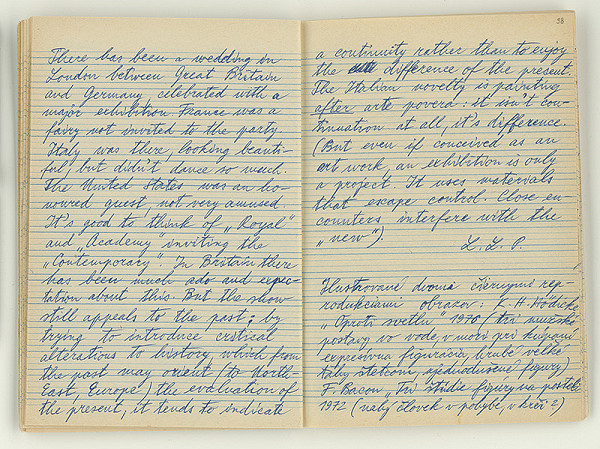 There has been a wedding in
London between Great Britain
and Germany, celebrated with a
major exhibition. France was a
fairy not invited to the party.
Italy was there, looking beauti-
ful, but didn't dance so much.
The United States was an ho-
noured guest, not very amused.
It's good to think of „Royal"
and „Academy" inviting the
„Contemporary". In Britain there
has been much ado and expec-
tation about this. But the show
still appeals to the past; by
trying to introduce critical
alterations to history, which from
the past may orient (to North-
East, Europe) the evaluation of
the present, it tends to indicate
38
a continuity rather than to enjoy
the difference of the present.
The Italian novelty is painting
after arte povera: it isn't con-
tinuation at all, it's difference.
(But even if conceived as an
art work, an exhibition is only
a project. It uses materials
that escape control. Close en-
counters interfere with the
„new").
L. L. P.
Ilustrované dvoma čiernymi rep-
rodukciami obrazov: K. H. Hödicke
„Oproti svetlu" 1976 (tri mužské
postavy vo vode, v mori pri kúpaní
expresívna figurácia, hrubé veľké
ťahy štetcom, zjednodušené figúry)
F. Bacon „Tri štúdie figúry na posteli
1972 (nahý človek v pohybe, v kŕči ?)